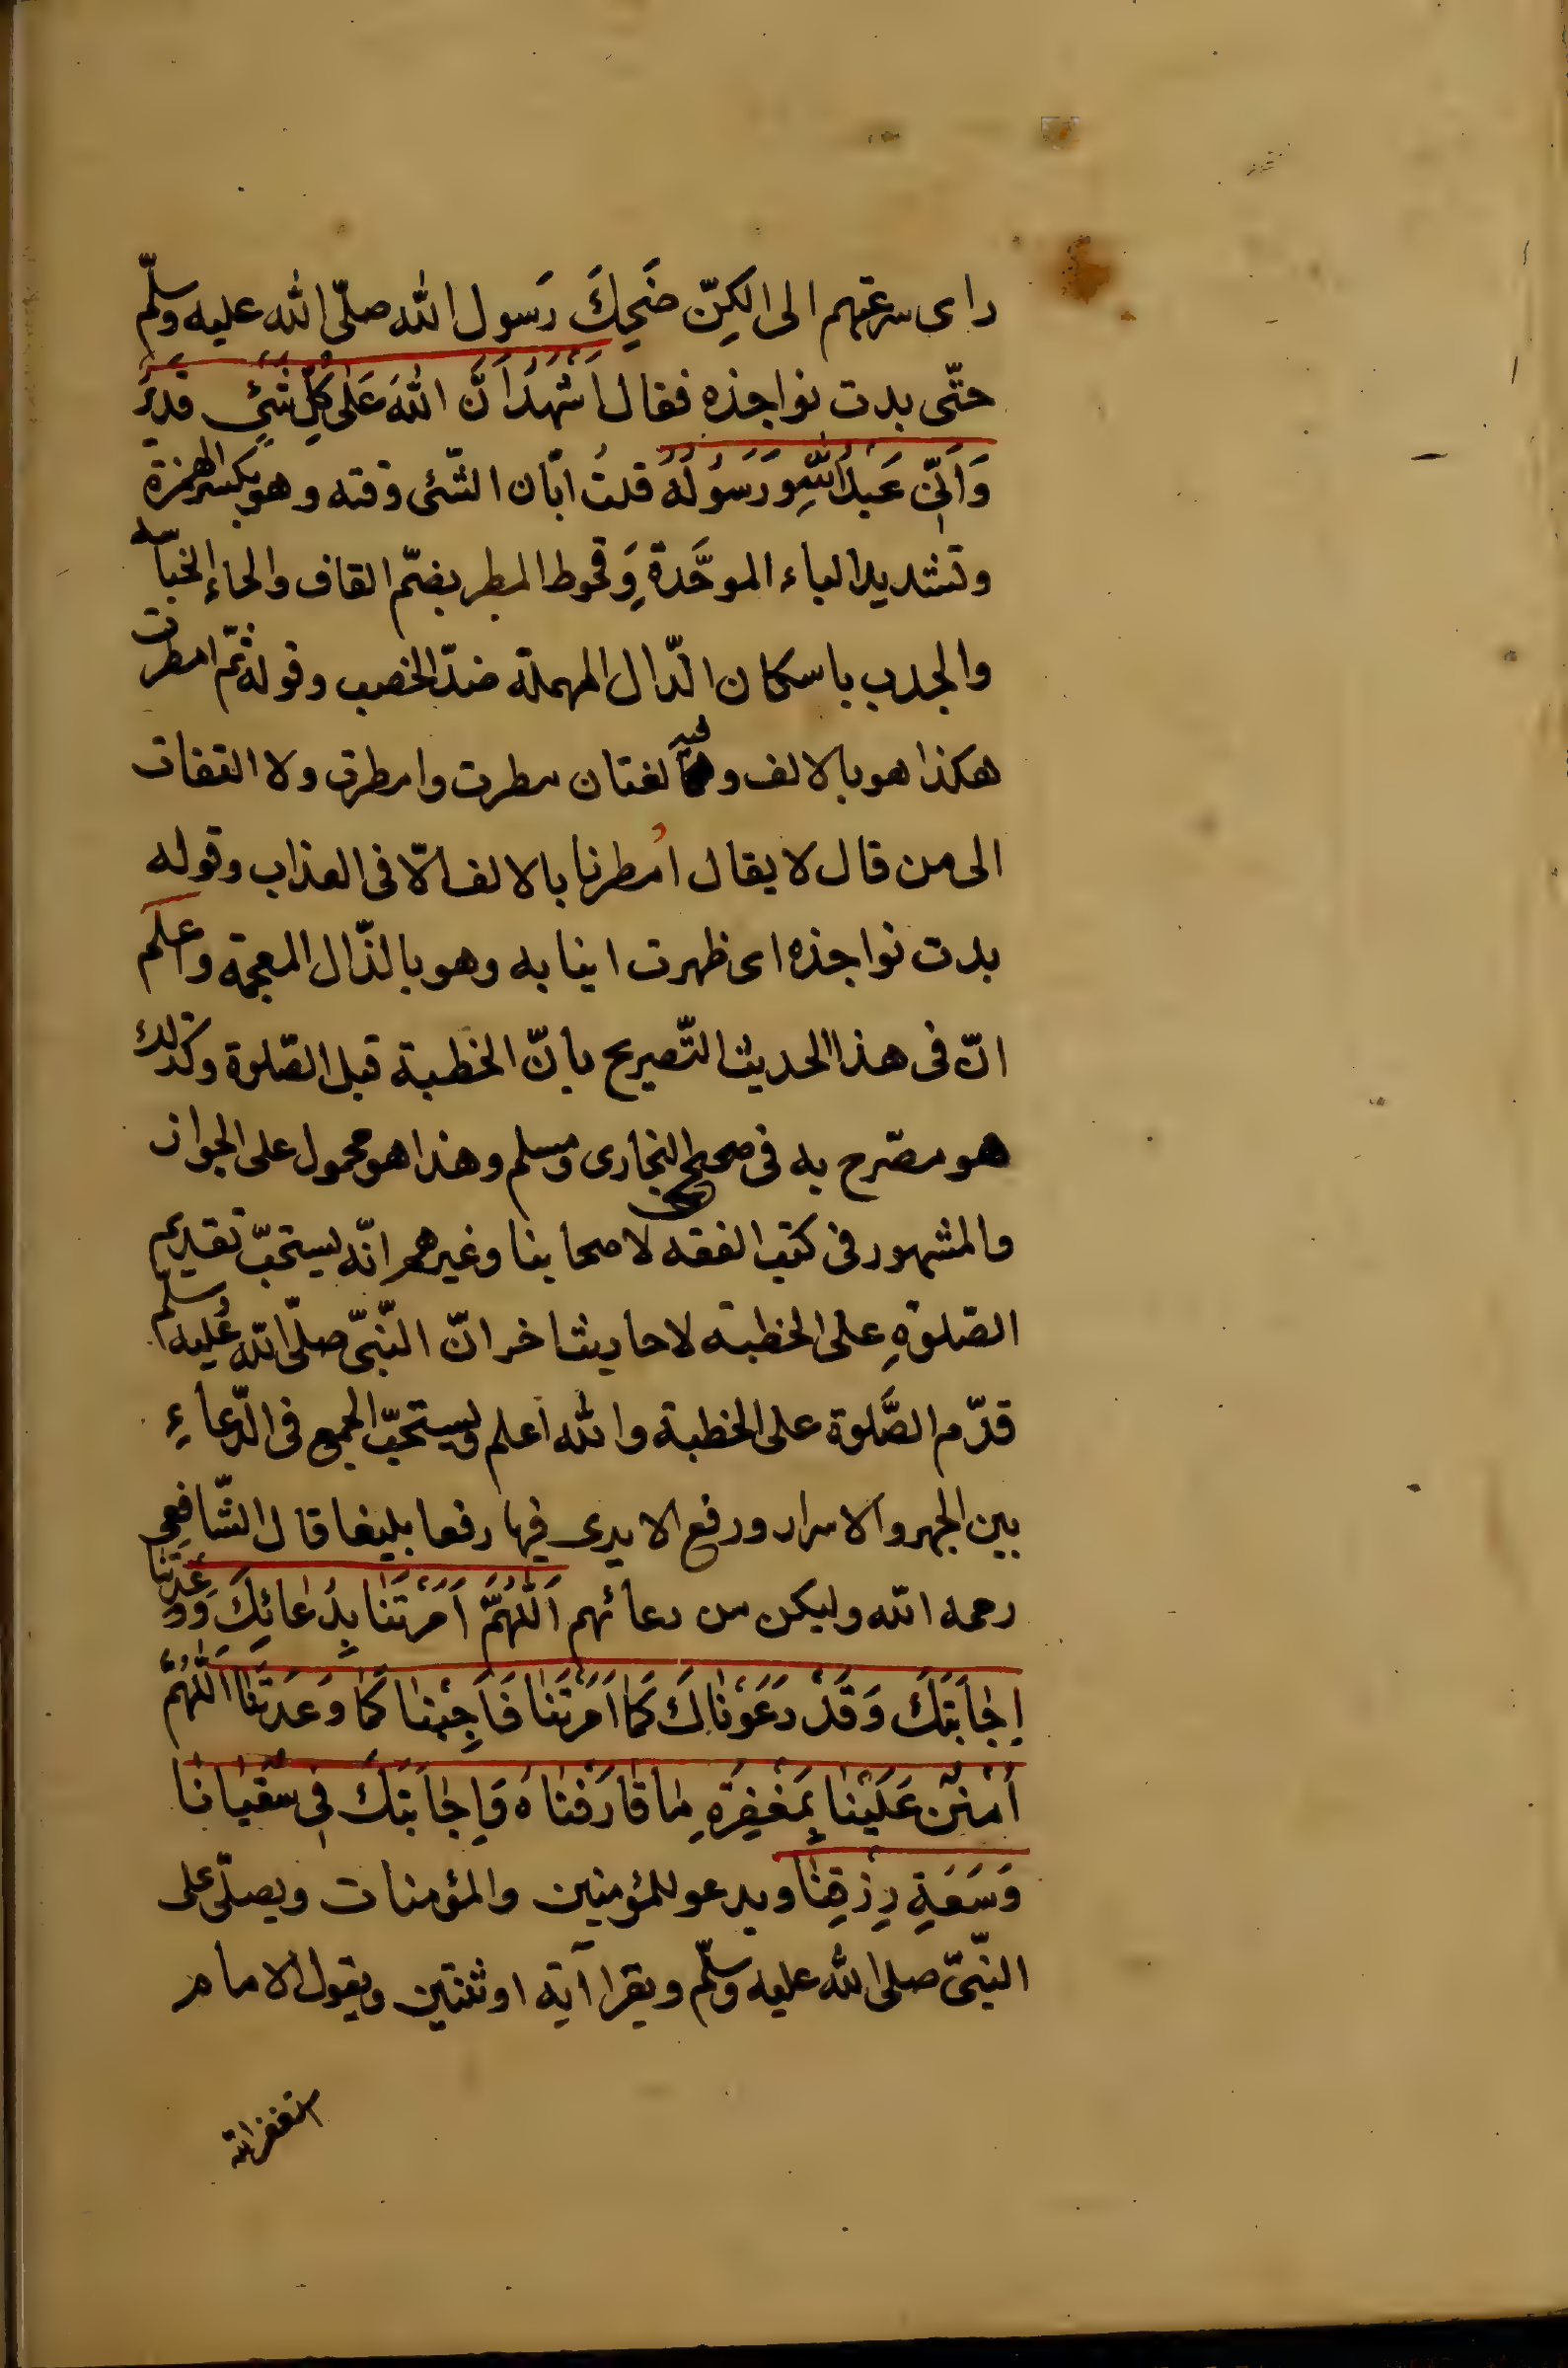 رای سرعتهم الی الکِنّ ضَحِكَ رَسول الله صلّی الله علیه وسلّم
حتّی بدت نواجذه فقال اَشْهَدُ اَنَّ اللهَ عَلٰی كُلِّ شَیْئٍ قَدِیْرٌ
وَاَنِّی عَبْدُ اللهِ وَرَسُوْلُهُ قلتُ ابّان الشّئی وقته وهو بکسر الهمزة
وتشدید الباء الموحَّدةِ وَقحوط المطر بضمّ القاف والحاءِ احتباسه
والجدب باسکان الدّال المهملة ضدّ الخصب وقوله ثمّ امطرت
هکذا هو بالالف وفیه لغتان مطرت وامطرت ولا التفات
الی من قال لا یقال اُمطرنا بالالف الّا فی العذاب وقوله
بدت نواجذه ای ظهرت انیابه وهو بالذّال المعجمة واعلم
انّ فی هذا الحدیث التّصریح بانّ الخطبة قبل الصّلوة وکذلك
هو مصّرح به فی صحیحی البخاری ومسلم وهذا هو محمول علی الجواز
والمشهور فی کتب الفقه لاصحابنا وغیرهم انّه یستحبّ تقدیم
الصّلوةِ علی الخطبة لاحادیث اخر انّ النّبیّ صلّی الله علیه وسلّم
قدّم الصَّلوة علی الخطبة والله اعلم ویستحبّ الجمع فی الدّعاءِ
بین الجهر والاسرار ورفع الایدی فیها رفعا بلیغا قال الشّافعی
رحمه الله ولیکن من دعائهم اَللّٰهُمَّ اَمَرْتَنَا بِدُعَائِكَ وَوَعَدْتَنَا
اِجَابَتَكَ وَقَدْ دَعَوْنَاكَ كَمَا اَمَرْتَنَا فَاَجِبْنَا كَمَا وَعَدْتَنَا اَللّٰهُمَّ
اُمْنُنْ عَلَیْنَا بِمَغْفِرَةِ مَا قَارَفْنَاهُ وَاِجَابَتِكَ فِی سُقْیَانَا
وَسَعَةِ رِزْقِنَا ویدعو للمؤمنین والمؤمنات ویصلّی علی
النّبیّ صلی الله علیه وسلّم ویقرا آیة او ثنتین ویقول الامام
استغفر الله